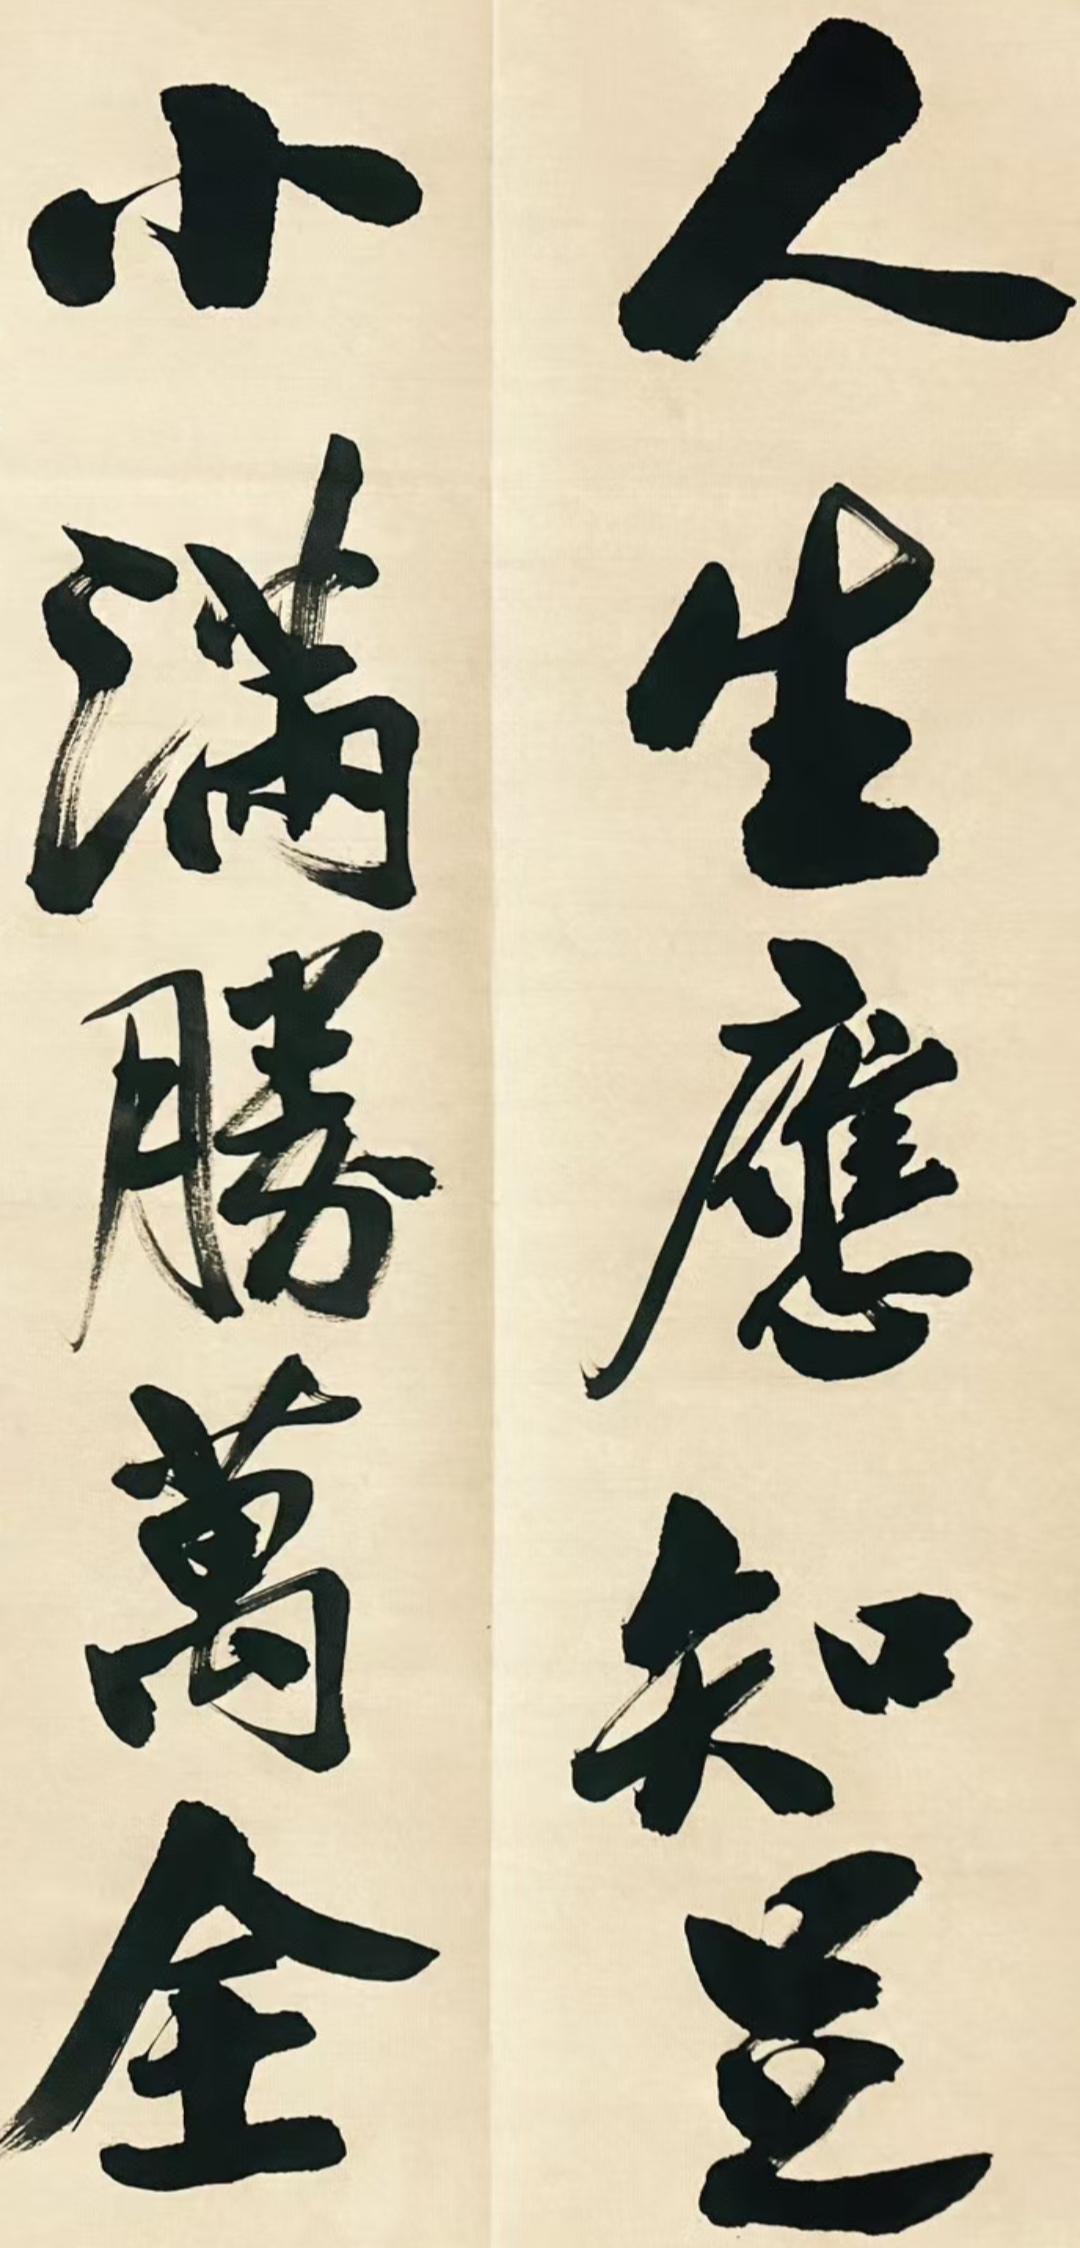 人生應知足
小滿勝萬全